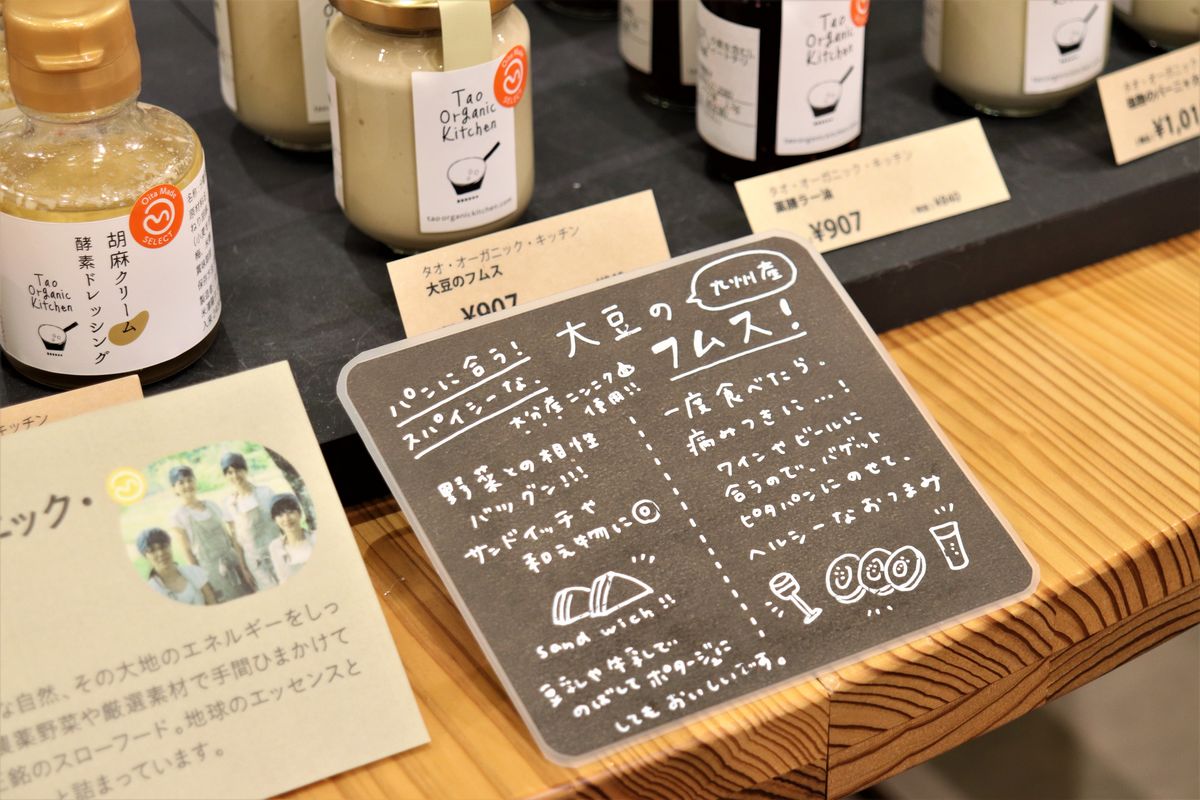 Oita Made
SELECT
胡麻クリーム
酵素ドレッシング
Tao
Organic
Kitchen
Oita Made
SELECT
Tao
Organic
Kitchen
taoorganickitchen.com
Tao
Organic
Kitchen
taoorganickitchen.com
タオ・オーガニック・キッチン
大豆のフムス
¥907
タオ・オーガニック・キッチン
薬膳ラー油
¥907
(税抜 ¥840)
タオ・オーガニック・キ
¥1,01
キッチン
九州産
大豆の
フムス!
パンに合う!
スパイシーな、
大分産ニンニク
使用!!
野菜との相性
バツグン!!!
サンドイッチや
和え物に◎
sandwich!!
豆乳や牛乳で
のばしてポタージュに
してもおいしいです。
一度食べたら、
病みつきに…!
ワインやビールに
合うので、バゲット
ピタパンにのせて、
ヘルシーなおつまみ
ニック・
な自然、その大地のエネルギーをしっ
農薬野菜や厳選素材で手間ひまかけて
正銘のスローフード。地球のエッセンスと
と詰まっています。